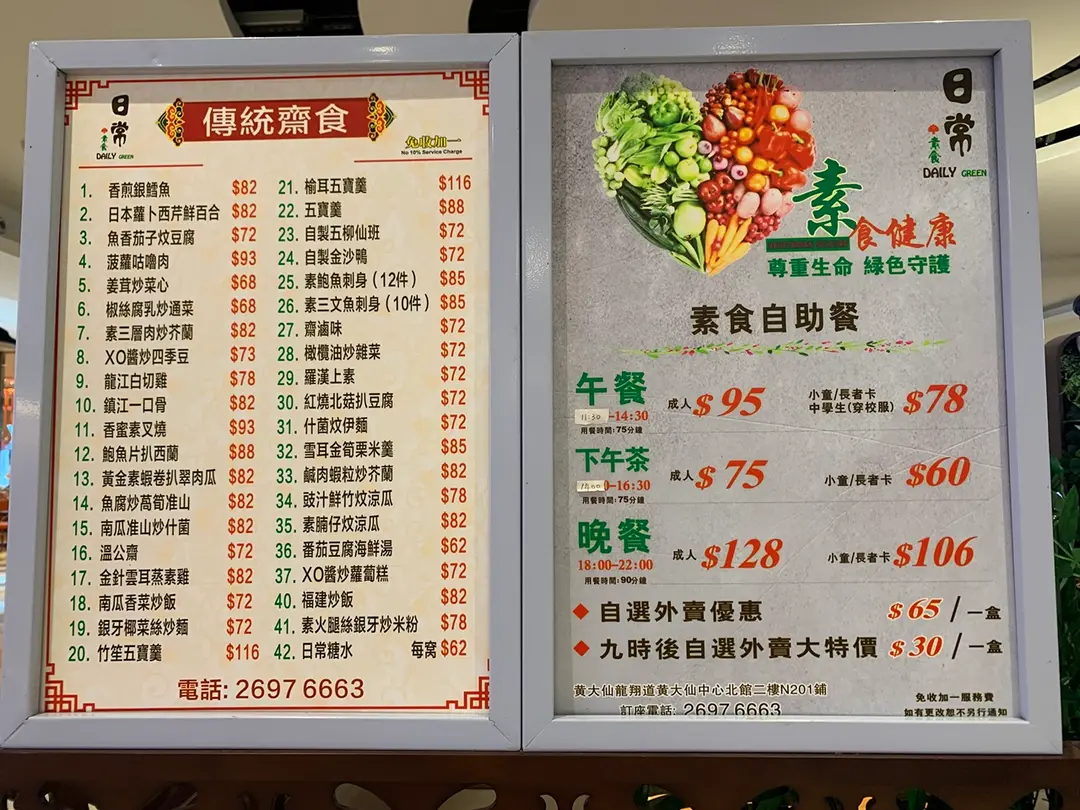 日常
素食
DAILY GREEN
傳統齋食
免收加一
No 10% Service Charge
1. 香煎銀鱈魚 $82
2. 日本蘿卜西芹鮮百合 $82
3. 魚香茄子炆豆腐 $72
4. 菠蘿咕嚕肉 $93
5. 姜茸炒菜心 $68
6. 椒絲腐乳炒通菜 $68
7. 素三層肉炒芥蘭 $82
8. XO醬炒四季豆 $73
9. 龍江白切雞 $78
10. 鎮江一口骨 $82
11. 香蜜素叉燒 $93
12. 鮑魚片扒西蘭 $88
13. 黃金素蝦卷扒翠肉瓜 $82
14. 魚腐炒萵筍准山 $82
15. 南瓜准山炒什菌 $82
16. 溫公齋 $72
17. 金針雲耳蒸素雞 $82
18. 南瓜香菜炒飯 $72
19. 銀牙椰菜絲炒麵 $72
20. 竹笙五寶羹 $116
21. 榆耳五寶羹 $116
22. 五寶羹 $88
23. 自製五柳仙班 $72
24. 自製金沙鴨 $72
25. 素鮑魚刺身（12件） $85
26. 素三文魚刺身（10件） $85
27. 齋滷味 $72
28. 橄欖油炒雜菜 $72
29. 羅漢上素 $72
30. 紅燒北菇扒豆腐 $72
31. 什菌炆伊麵 $72
32. 雪耳金筍栗米羹 $85
33. 鹹肉蝦粒炒芥蘭 $82
34. 豉汁鮮竹炆涼瓜 $78
35. 素腩仔炆涼瓜 $82
36. 番茄豆腐海鮮湯 $62
37. XO醬炒蘿蔔糕 $72
40. 福建炒飯 $82
41. 素火腿絲銀牙炒米粉 $78
42. 日常糖水 每窝 $62
電話: 2697 6663
日常
素食
DAILY GREEN
素食健康
尊重生命 綠色守護
素食自助餐
午餐 成人 $95 小童/長者卡 中學生(穿校服) $78
11:30-14:30
用餐時間: 75分鐘
下午茶 成人 $75 小童/長者卡 $60
-16:30
用餐時間: 75分鐘
晚餐 成人 $128 小童/長者卡 $106
18:00-22:00
用餐時間: 90分鐘
◆ 自選外賣優惠 $65/一盒
◆ 九時後自選外賣大特價 $30/一盒
黃大仙龍翔道黃大仙中心北館二樓N201鋪
訂座電話: 2697 6663
免收加一服務費
如有更改恕不另行通知